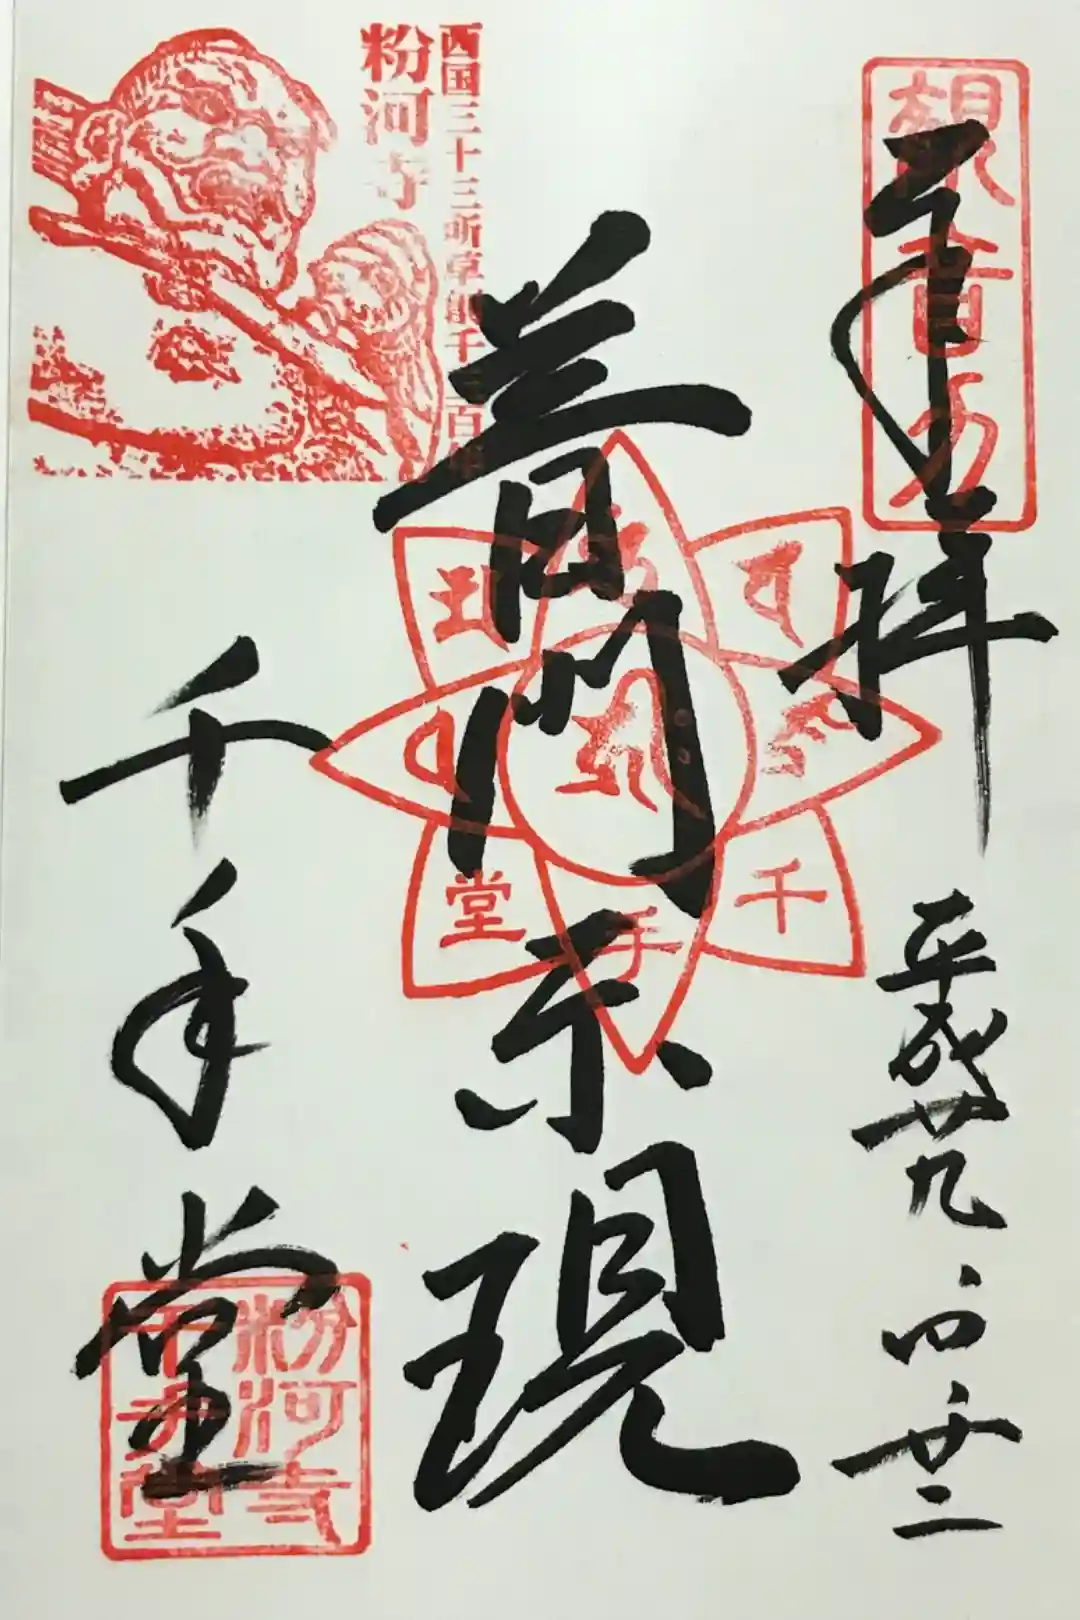 奉拝
平成廿九、四、廿二
普門示現
千手堂
観音力
西国三十三所草創千三百年
粉河寺
千
手
堂
粉河寺
千手堂